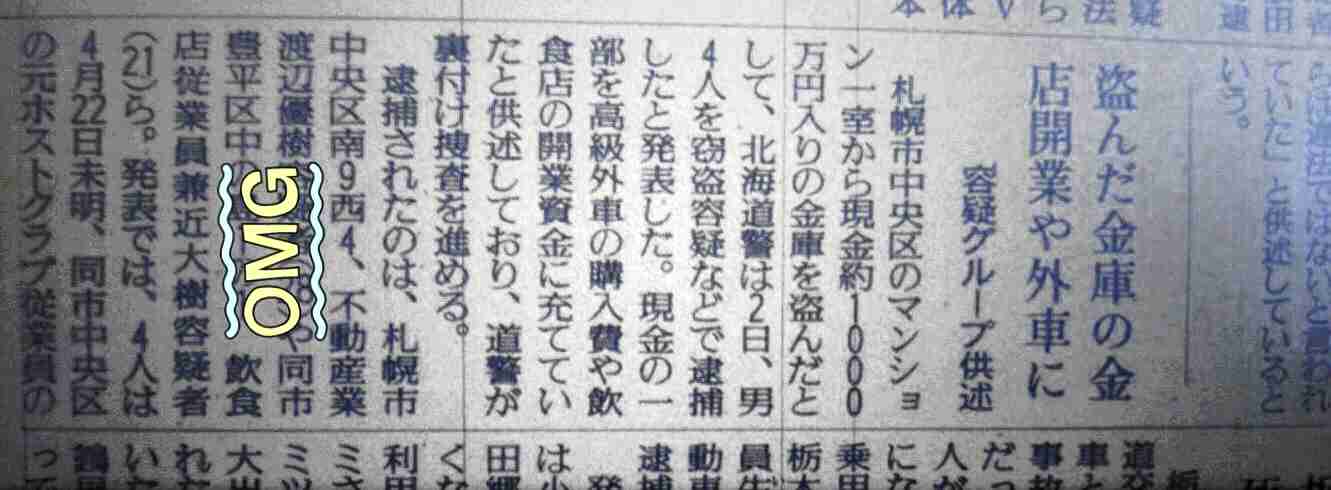 疑
法
ら
V
体
本
逮
らは違法ではないと言われ
ていた」と供述していると
いう。
盗んだ金庫の金
店開業や外車に
容疑グループ供述
札幌市中央区のマンショ
ン一室から現金約1000
万円入りの金庫を盗んだと
して、北海道警は2日、男
4人を窃盗容疑などで逮捕
したと発表した。現金の一
部を高級外車の購入費や飲
食店の開業資金に充ててい
たと供述しており、道警が
裏付け捜査を進める。
逮捕されたのは、札幌市
中央区南9西4、不動産業
渡辺優樹 や同市
豊平区中の 飲食
店従業員兼近大樹容疑者
(21)ら。発表では、4人は
4月22日未明、同市中央区
の元ホストクラブ従業員の
OMG
道交
車と
事故
だっ
人が
にな
乗用
栃木
員生
動車
逮捕
発
は小
田郷
くな
利用
ミさ
ミツ
大出
れた
いた
って